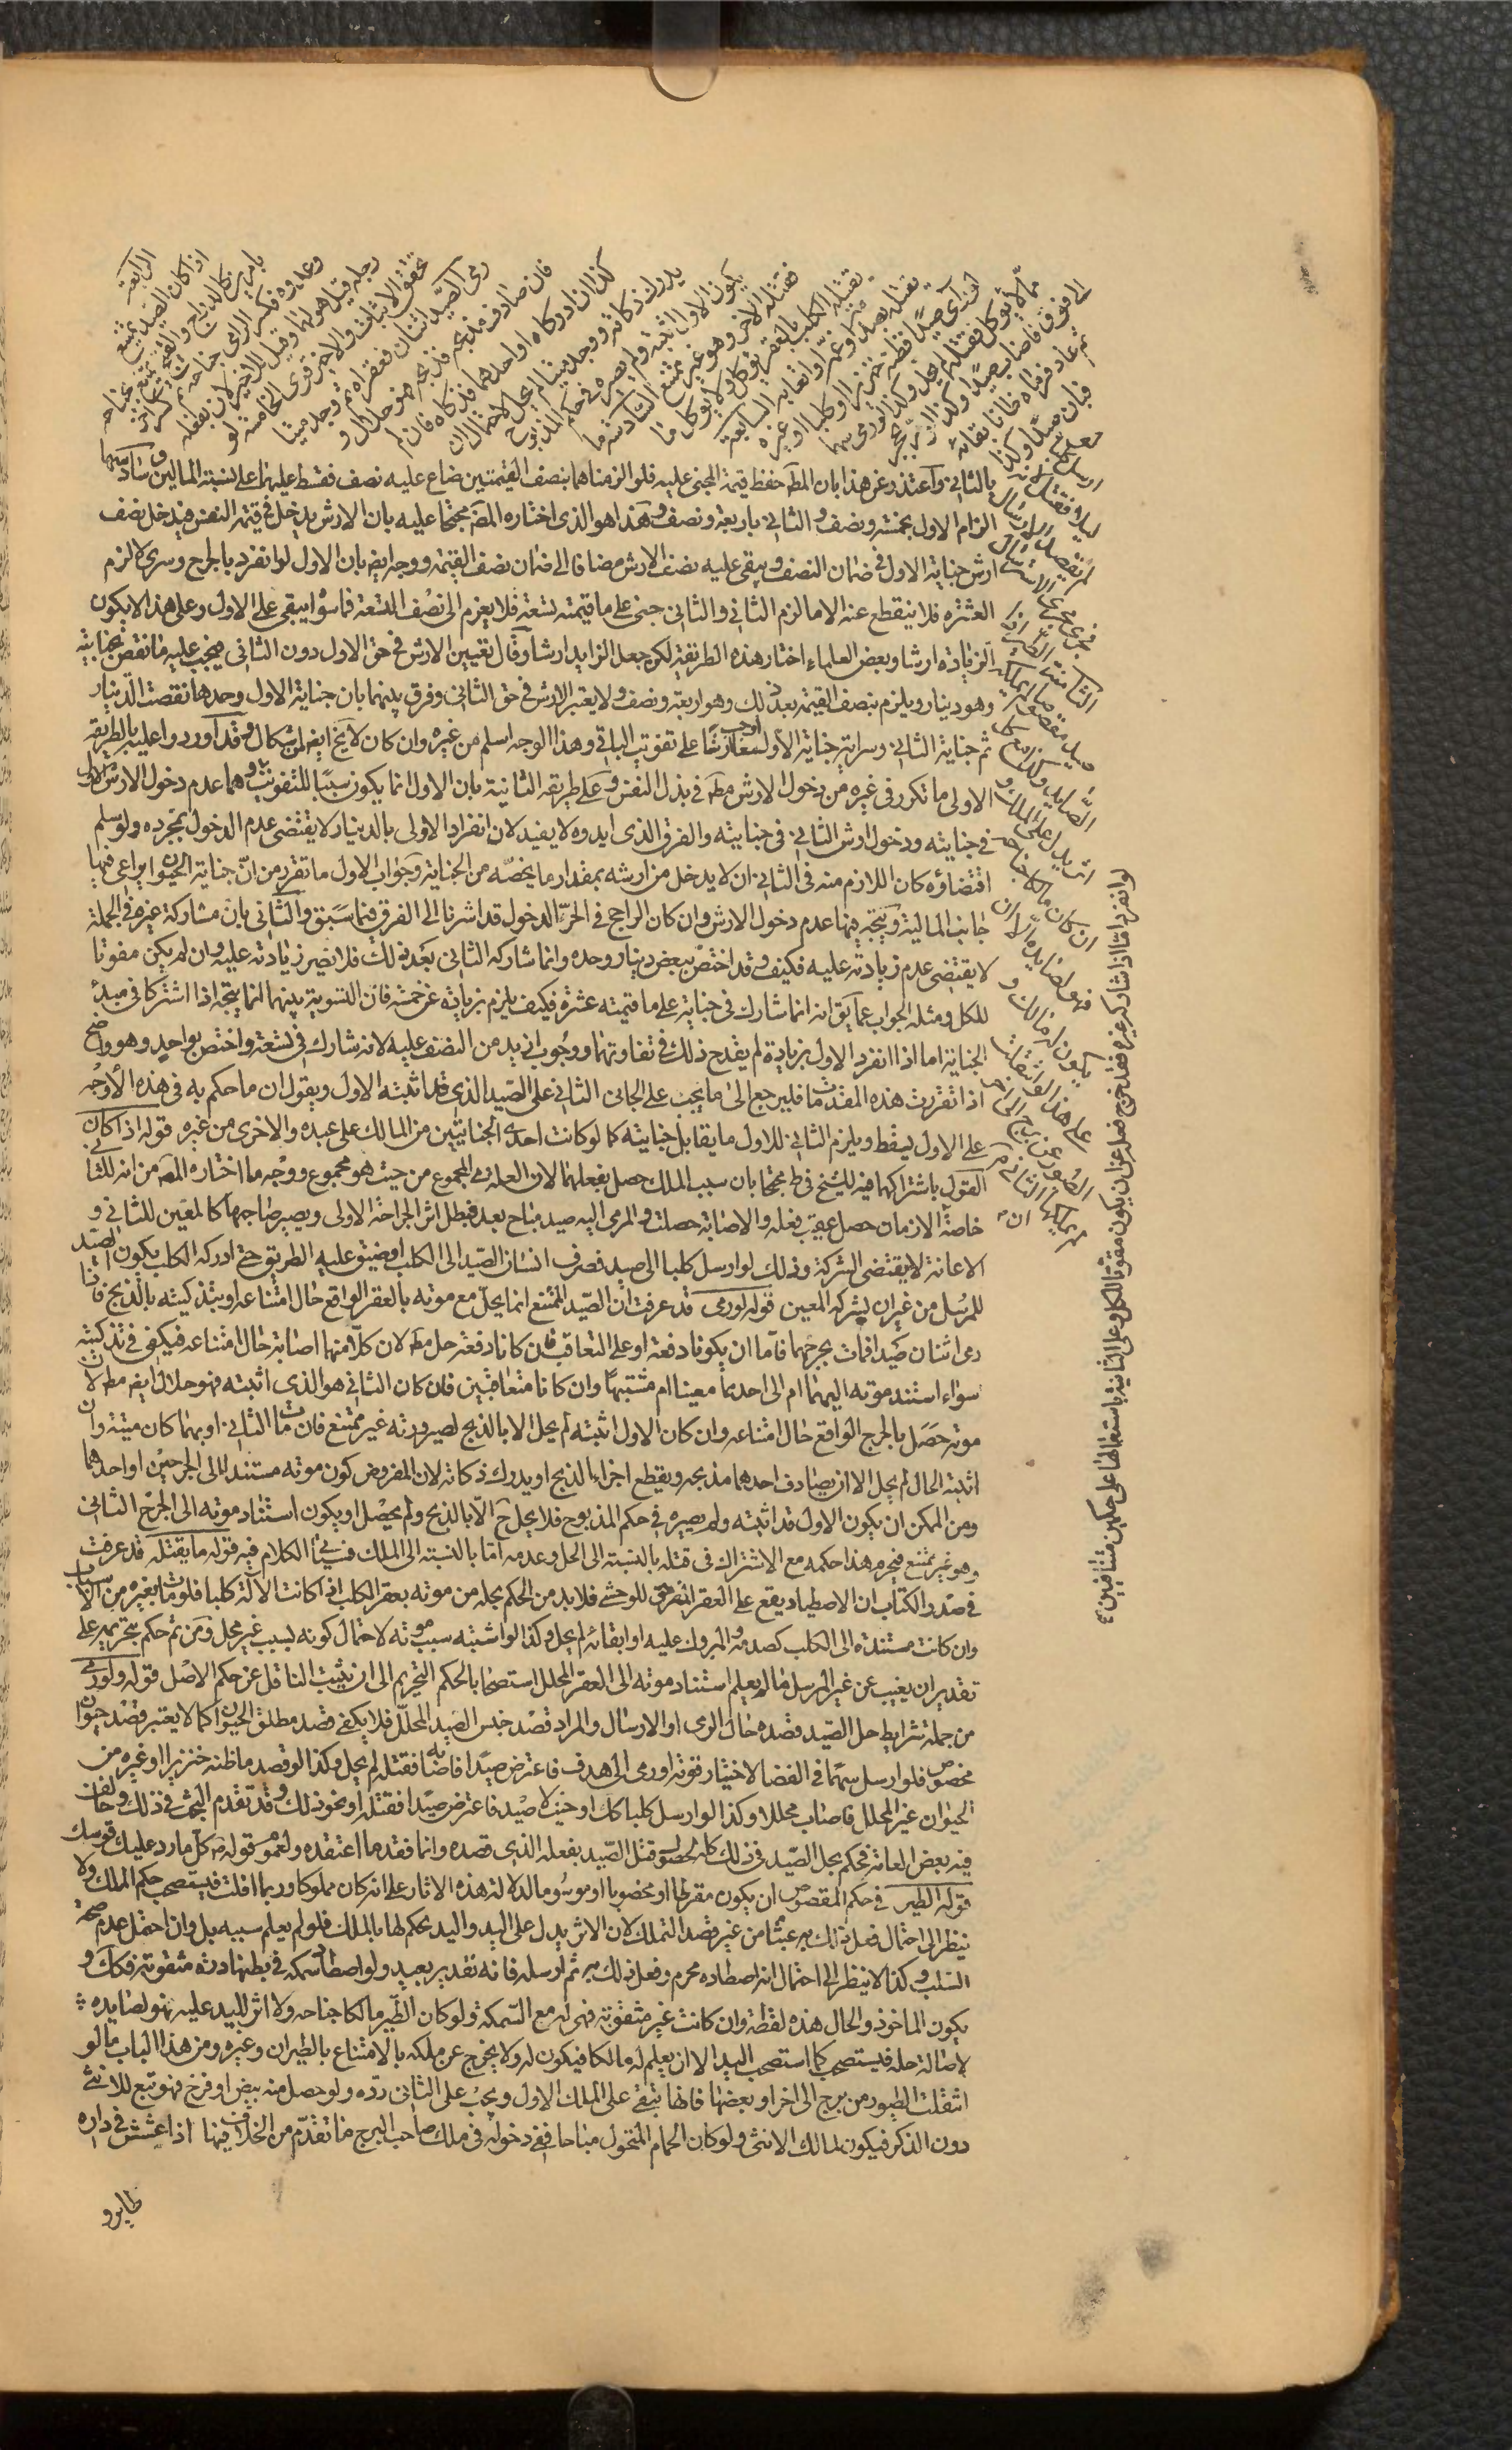 الرابعة
اذا كان الصيد يمتنع
بامرين كالدراج والقبج يمتنع بجناحه
وعدوه فكسر الرامي جناحه ثم كسر آخر
رجله قيل هو لهما وقيل للاخير لان بفعله
تحقق الاثبات والاخير قوي الخامسة لو
رمى الصيد اثنان فعقراه ثم وجد ميتا
فان صادف مذبحه فذبحه فهو حلال و
كذا ان ادركاه او احدهما فذكاه فان لم
يدرك ذكاته ووجد ميتا لم يحل لاحتمال ان
يكون الاول اثبته ولم يصيره في حكم المذبوح
فقتله الاخر وهو غير ممتنع السادسة ما
يقتله الكلب بالعقر يؤكل ولا يؤكل ما
يقتله بصدمه او غمه او اتعابه السابعة
لو رأى صيدا فظنه خنزيرا او كلبا او غيره
مما لا يؤكل فقتله لم يحل وكذا لو رمى سهما
الى فوق فاصاب صيدا وكذا لو مر بحجر
ثم عاد فرماه ظانا بقائه
فبان صيدا وكذا
لو ارسل كلبا ليلا فقتل لانه
لم يقصد الارسال
فجرى مجرى الاسترسال
الثامنة الطير اذا
صيد مقصوصا لم يملكه
الصايد وكذا مع كل
اثر يدل على الملك و
ان كان مالكا جناحه
فهو لصايده الا ان
يكون له مالك و
على هذا لو انتقلت
الطيور من برج الى اخر
لم يملكها الثاني
بالثاني واعتذر عن هذا بان المط حفظ قيمة المجني عليه فلو الزمناهما بنصف القيمتين ضاع عليه نصف فقسط عليهما على نسبة المالين وسادسها
الزام الاول بخمسة ونصف والثاني باربعة ونصف وهذا هو الذي اختاره المصَ محتجا عليه بان الارش يدخل في قيمة النفس فيدخل نصف
ارش جناية الاول في ضمان النصف ويبقى عليه نصف الارش مضافا الى ضمان نصف القيمة ووجه ايضَ بان الاول لو انفرد بالجرح وسرى لالزم
العشرة فلا ينقطع عنه الا ما لزم الثاني والثاني جنى على ما قيمته تسعة فلا يغرم الى نصف التسعة فاسوا يبقى على الاول وعلى هذا لا يكون
الزيادة ارشا وبعض العلماء اختار هذه الطريقة لكن جعل الزايد ارشا وقال بتعيين الارش في حق الاول دون الثاني فيجب عليه ما نقص بجنايته
وهو دينار ويلزم بنصف القيمة بعد ذلك وهو اربعة ونصف ولا يعتبر الارش في حق الثاني وفرق بينهما بان جناية الاول وحدها نقصت الدينار
ثم جناية الثاني وسراية جناية الاول تعاونتا على تفويت الباقي وهذا الوجه اسلم من غيره وان كان لا يخ ايضَ من اشكال وقد اوردوا عليه بالطريقة
الاولى ما تكرر في غيره من دخول الارش مطَ في بدل النفس وعلى طريقة الثانية بان الاول انما يكون سببا للتفويت وهما عدم دخول الارش الاول
في جنايته ودخول ارش الثاني في جنايته والفرق الذي ابدوه لا يفيد لان انفراد الاولى بالدينار لا يقتضي عدم الدخول بمجرده ولو سلم
اقتضاؤه كان اللازم منه في الثاني ان لا يدخل من ارشه بمقدار ما يخصه من الجناية وجواب الاول ما تقرر من ان جناية الحيوان يراعى فيها
جانب المالية ويتجه فيها عدم دخول الارش وان كان الراجح في الحر الدخول قد اشرنا الى الفرق فيما سبق والثاني بان مشاركة غيره في الجملة
لا يقتضي عدم زيادته عليه فكيف وقد اختص ببعض دينار وحده وانما شاركه الثاني بعد ذلك فلا يضر زيادته عليه وان لم يكن مفوتا
للكل ومثله الجواب عما يقَ انه انما شارك في جناية على ما قيمته عشرة فكيف يلزم بزيادة عن خمسة فان التسوية بينهما انما يتجه اذا اشتركا في مبدأ
الجناية اما اذا انفرد الاول بزيادة لم يقدح ذلك في تفاوتهما ووجوب ازيد من النصف عليه لانه شارك في تسعة واختص بواحد وهو واضح
اذا تقررت هذه المقدمات فليرجع الى ما يجب على الجاني الثاني على الصيد الذي قد اثبته الاول ويقول ان ما حكم به في هذه الاوجه
على الاول يسقط ويلزم الثاني للاول ما يقابل جنايته كما لو كانت احدى الجنايتين من المالك على عبده والاخرى من غيره قوله اذا كان
القول باشتراكهما فيه للشيخ في ط محتجا بان سبب الملك حصل بفعلهما لان العلة هي المجموع من حيث هو مجموع ووجه ما اختاره المصَ من انه للثاني
خاصة الازمان حصل عقيب فعله والاصابة حصلت والمرمى اليه صيد مباح بعد فبطل اثر الجراحة الاولى ويصير صاحبها كالمعين للثاني و
الاعانة لا يقتضي الشركة وذلك لو ارسل كلبا الى صيد فصرف انسان الصيد الى الكلب او ضيق عليه الطريق حتى ادركه الكلب يكون الصيد
للمرسل من غير ان يشركه المعين قوله لو رمى قد عرفت ان الصيد الممتنع انما يحل مع موته بالعقر الواقع حال امتناعه او بتذكيته بالذبح فاذا
رمى اثنان صيدا فمات بجرحهما فاما ان يكونا دفعة او على التعاقب فان كانا دفعة حل مطَ لان كلا منهما اصابة حال امتناعه فيكفي في تذكيته
سواء استند موته اليهما ام الى احدهما معينا ام مشتبها وان كانا متعاقبين فان كان الثاني هو الذي اثبته فهو حلال ايضَ مطَ لان
موته حصل بالجرح الواقع حال امتناعه وان كان الاول اثبته لم يحل الا بالذبح لصيرورته غير ممتنع فان مات بالثاني او بهما كان ميتة وان
اثبته الحال لم يحل الا ان يصادف احدهما مذبحه ويقطع اجزاء الذبح او يدرك ذكاته لان المفروض كون موته مستندا الى الجرحين او احدهما
ومن الممكن ان يكون الاول قد اثبته ولم يصيره في حكم المذبوح فلا يحل حَ الا بالذبح ولم يحصل او يكون استناد موته الى الجرح الثاني
وهو غير ممتنع فيحرم هذا حكمه مع الاشتراك في قتله بالنسبة الى الحل وعدمه اما بالنسبة الى الملك فسيأتي الكلام فيه قوله ما يقتله قد عرفت
في صدر الكتاب ان الاصطياد يقع على العقر المزهق للوحشي فلا بد من الحكم بحله من موته بعقر الكلب اذا كانت الآلة كلبا فلو مات بغيره من الاسباب
وان كانت مستندة الى الكلب كصدمه والبروك عليه او اتعابه لم يحل وكذا لو اشتبه سبب موته لاحتمال كونه لسبب غير محلل ومن ثم حكم بتحريمه على
تقدير ان يغيب عن غير المرسل ما لم يعلم استناد موته الى العقر المحلل استصحابا لحكم التحريم الى ان يثبت الناقل عن حكم الاصل قوله ولو رمى
من جملة شرايط حل الصيد قصده حال الرمي او الارسال والمراد قصد جنس الصيد المحلل فلا يكفي قصد مطلق الحيوان كما لا يعتبر قصد حيوان
مخصوص فلو ارسل سهما في الفضا لاختبار قوته او رمى الى هدف فاعترض صيدا فاصابه فقتله لم يحل وكذا لو قصد ما ظنه خنزيرا او غيره من
الحيوان غير المحلل فاصاب محللا وكذا لو ارسل كلبا كك او حيث لا صيد فاعترض صيدا فقتله او نحو ذلك وقد تقدم البحث في ذلك وخالف
فيه بعض العامة فحكم بحل الصيد في ذلك كله لحصول قتل الصيد بفعله الذي قصده وانما فقد ما اعتقده ولعموم قوله صَ كل ما رد عليك قوسك
قوله الطير في حكم المقصوص ان يكون مقرطا او مخضوبا او موسوما لدلالة هذه الاثار على انه كان مملوكا وربما افلت فيستصحب حكم الملك ولا
ينظر الى احتمال فعل ذلك به عبثا من غير قصد التملك لان الاثر يدل على اليد واليد يحكم لها بالملك فلو لم يعلم سببه بل وان احتمل عدم صحة
السلب وكذا لا ينظر الى احتمال انه اصطاده محرم وفعل ذلك به ثم ارسله فانه تقدير بعيد ولو اصطاد سمكة في بطنها درة مثقوبة فكك و
يكون الماخوذ والحال هذه لقطة وان كانت غير مثقوبة فهي له مع السمكة ولو كان الطير مالكا جناحه ولا اثر لليد عليه فهو لصايده
لاصالة حله فيستصحب كما استصحب اليد الا ان يعلم له مالكا فيكون له ولا يخرج عن ملكه بالامتناع بالطيران وغيره ومن هذا الباب ما لو
انتقلت الطيور من برج الى اخر او بعضها فانها تبقى على الملك الاول ويجب على الثاني رده ولو حصل منه بيض او فرخ فهو تبع للانثى
دون الذكر فيكون لمالك الانثى ولو كان الحمام المتحول مباحا ففي دخوله في ملك صاحب البرج ما تقدم من الخلاف فيها اذا عشش في داره
طاير و
لو انفرد اما اذا شاركه غيره فقد خرج فعله عن ان يكون مفوتا للكل وعلى الثانية باستعمالها على حكمين متنافيين